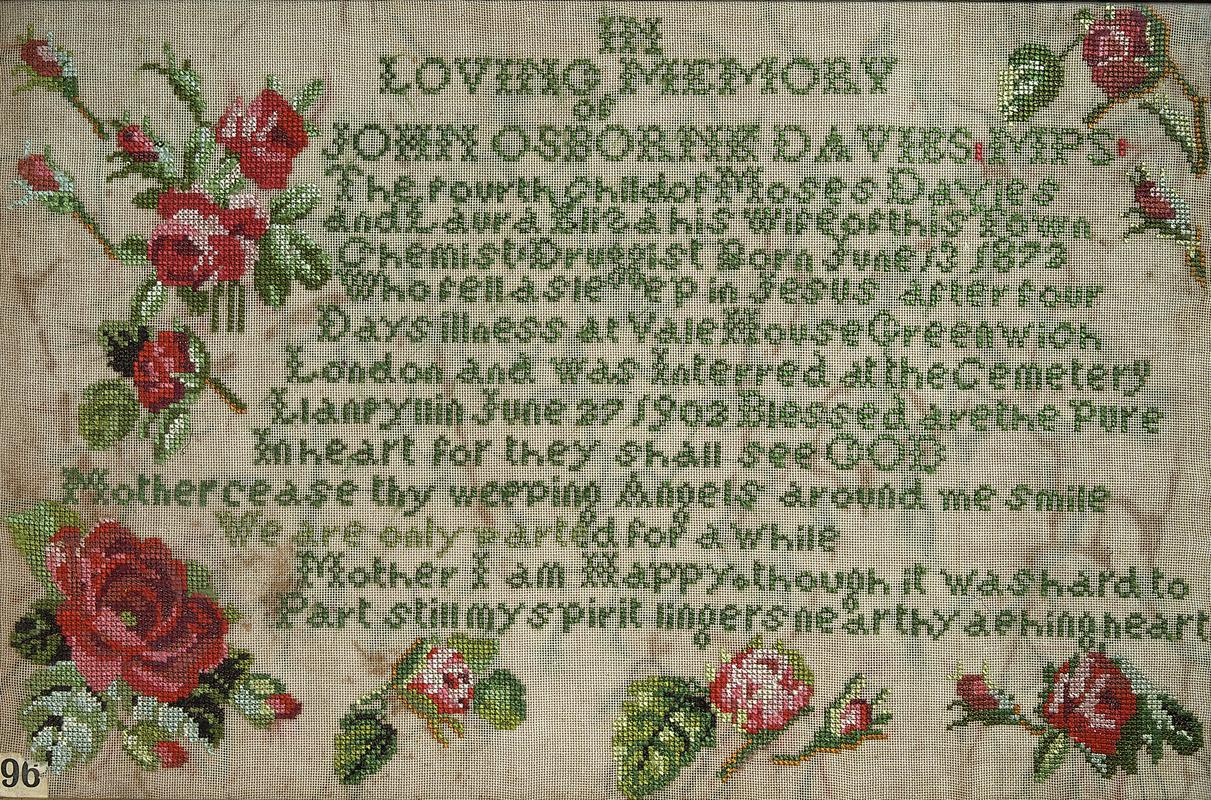 IN
LOVING MEMORY
of
JOHN OSBORNE DAVIES MPS
The fourth Child of Moses Davies
and Laura Eliza his wife of this Town
Chemist Druggist Born June 13 1873
Who fell asleep in Jesus after four
Days illness at Vale House Greenwich
London and was Interred at the Cemetery
Llanfyllin June 27 1902 Blessed are the Pure
In heart for they shall see GOD
Mother cease thy weeping Angels around me smile
We are only parted for a while
Mother I am Happy though it was hard to
Part still my spirit lingers near thy aching heart
96